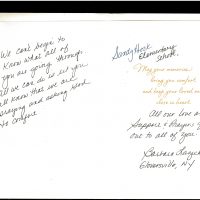 We can't begin to
know what all of
you are going through.
All we can do is let you
all know that we are
praying and asking God
to
Sandy Hook
Elementary
School,
May your memories
bring you comfort
and keep your loved one
close in heart.
All our love and
Support & Prayers go
out to all of you
Barbara
N.Y.